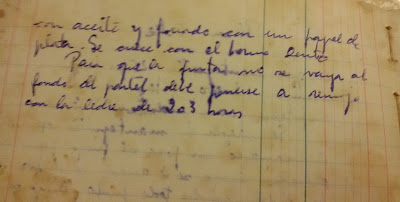 con aceite y forrado con un papel de
plata. Se cuece con el horno lento
Para que la fruta no se vaya al
fondo del pastel debe ponerse a remojo
con la leche de 2 o 3 horas